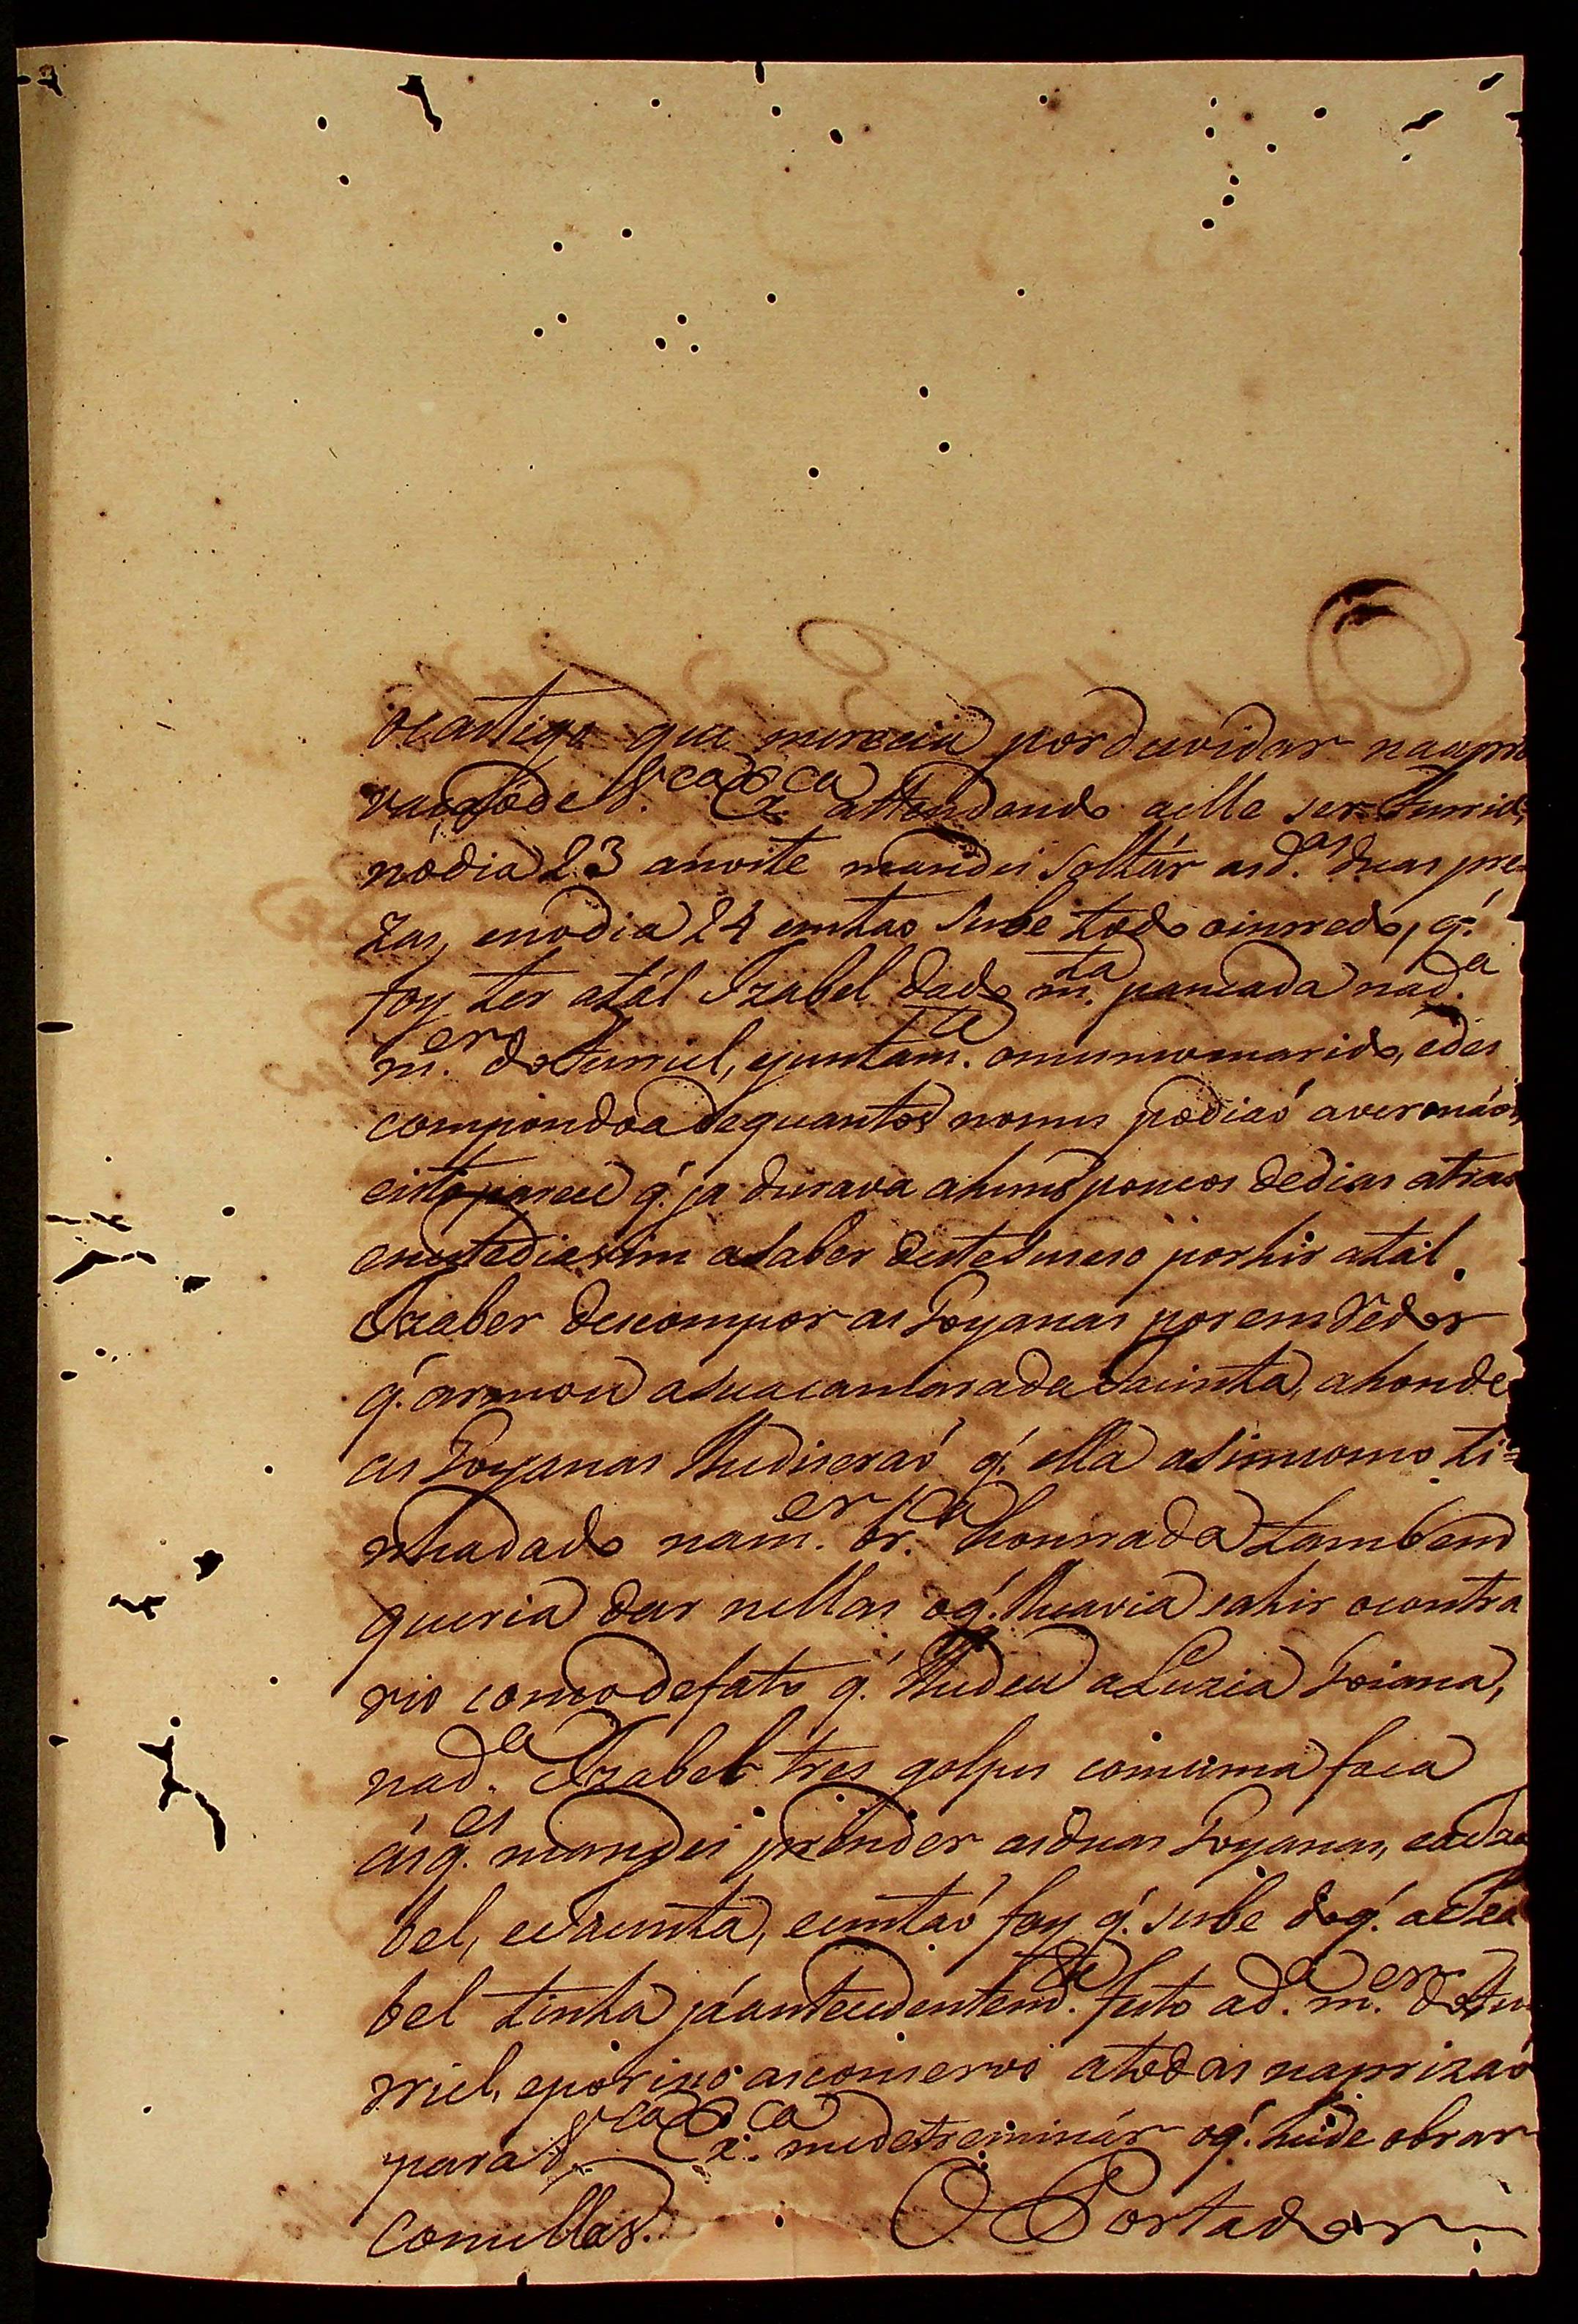 ocastigo que merecia por duvidar naapro
vaçaõde V.ca Ex.ca attendendo aelle ser furriel,
nodia 23 anoite mandei Soltár asd.as duas pre=
zas, enodia 24 emtaõ Sube todo oinrredo, q.'
foy ter atál Izabel dado m.ta pancada nad.a
m.er do furriel, ejuntam.te omesmomarido, edes
compondoa dequantos nomes podiaõ averomáos,
eistoparece q.' ja durava ahuns poucos dedias atras
enestediavim aSaber desteSuseso porhir atál
Izaber descompor as Goyanas poremrredos
q.' armou aSuacamarada Jacinta, ahonde
as Goyanas lhediseraõ q.' ella aSimcomo ti=
nhadado nam.er br.ca honrrada tambem
queria dar nellas oq.' lheavia sahir ocontra
rio comodefato q.' lhedeu aLuzia Goiana,
nad.a Izabel tres golpes comuma faca
ásq.es mandei prender asduas Goyanas, eaIza
bel, eeJacinta, eemtaõ foy q.' sube doq.' aIza
bel tinha jáantecedentem.te feito ad.a m.er dofu
rriel, eporiso asconservo atodas naprizaõ
para V.ca Ex.ca medetreminár oq.' heide obrar
comellas. O Portador